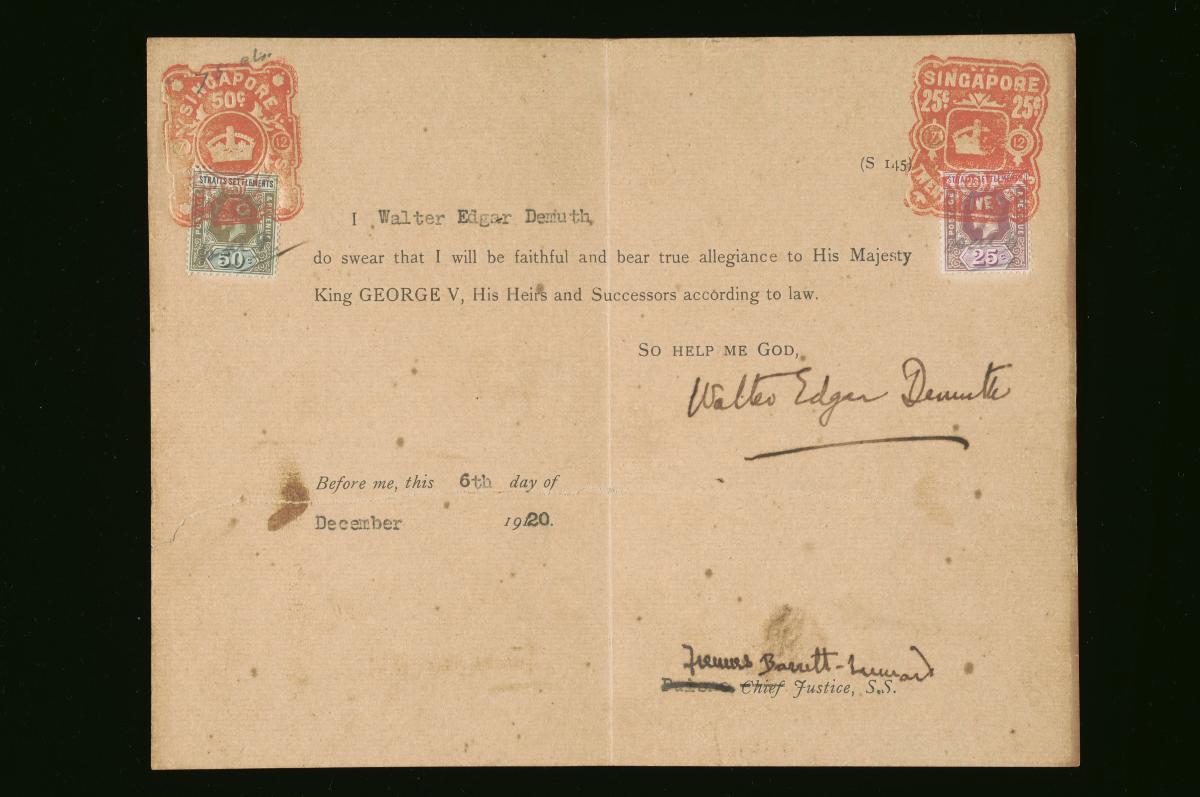 SINGAPORE
50¢
12
STRAITS SETTLEMENTS
POSTAGE & REVENUE
50c
SINGAPORE
25¢ 25¢
12 12
25c
(S 145)
I Walter Edgar Demuth,
do swear that I will be faithful and bear true allegiance to His Majesty
King GEORGE V, His Heirs and Successors according to law.
SO HELP ME GOD,
Walter Edgar Demuth
Before me, this 6th day of
December 1920.
Barrett-Lennard
Chief Justice, S.S.